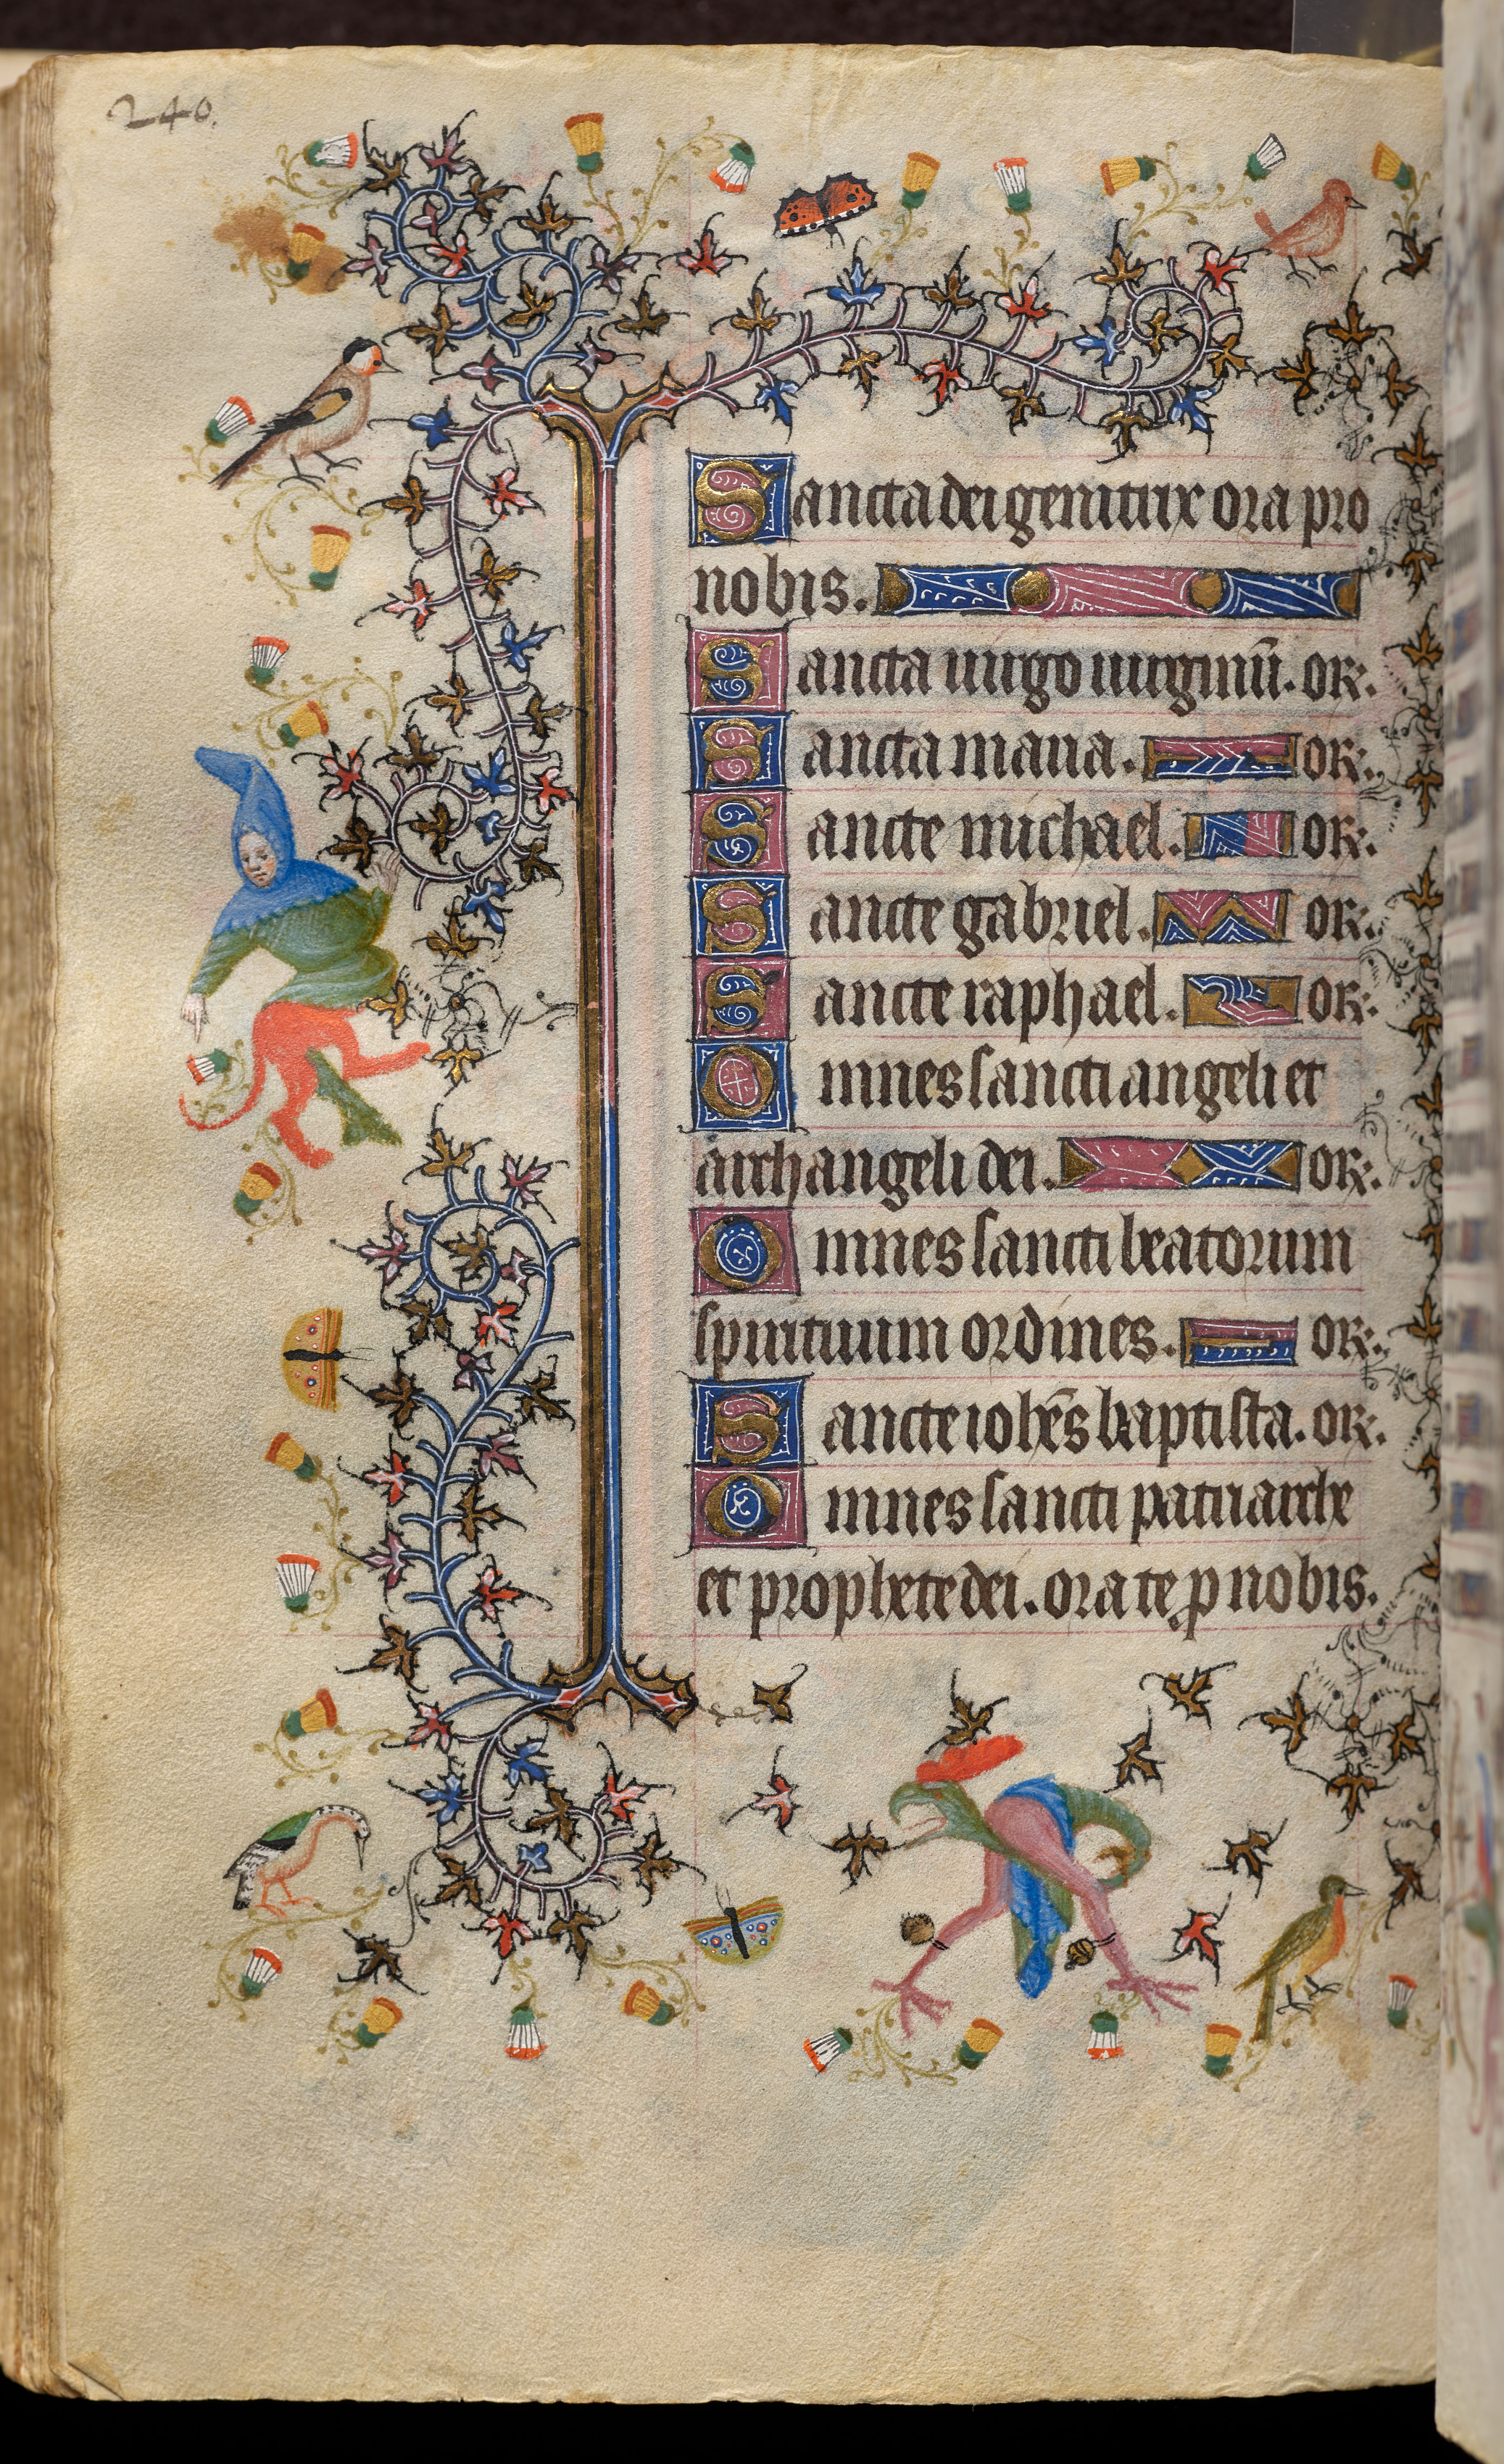 240.
Sancta dei genitrix ora pro
nobis.
Sancta uirgo uirginū. or.
Sancta maria. or.
Sancte michael. or.
Sancte gabriel. or.
Sancte raphael. or.
Omnes sancti angeli et
archangeli dei. or.
Omnes sancti beatorum
spirituum ordines. or.
Sancte ioh̄es baptista. or.
Omnes sancti patriarche
et prophete dei. orate ꝓ nobis.